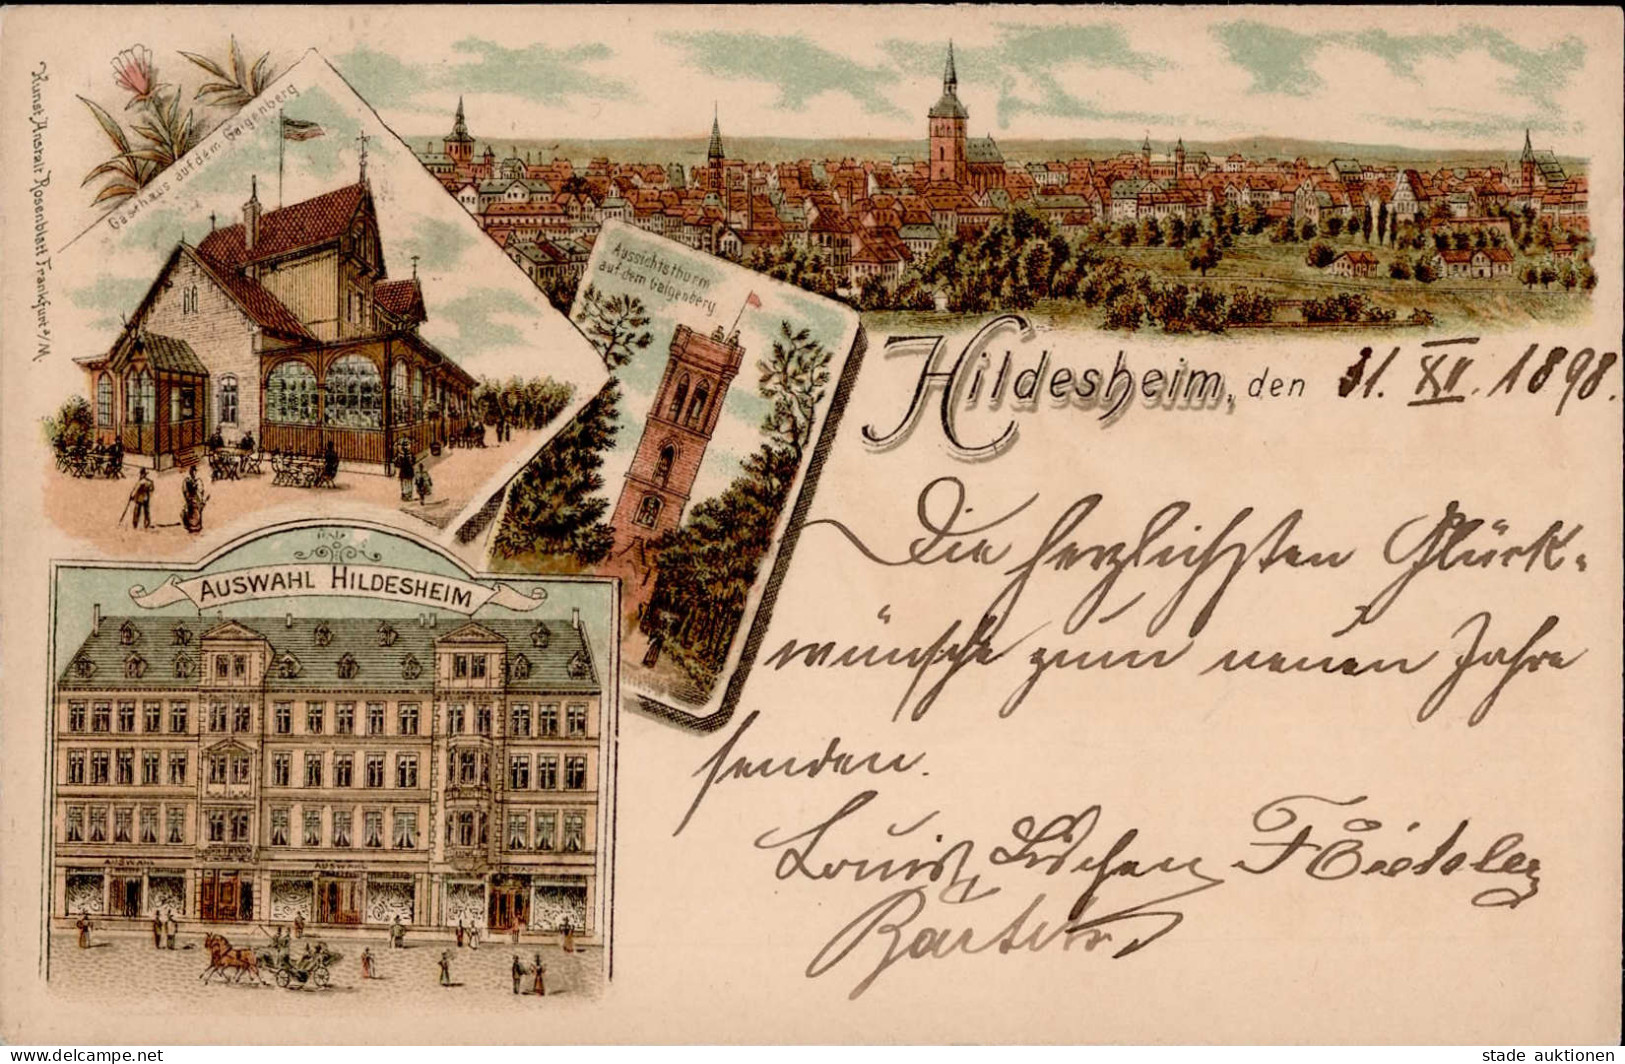 Kunst Anstalt Rosenblatt Frankfurt a/M.
Gasthaus auf dem Galgenberg
Aussichtsthurm
auf dem Galgenberg
Hildesheim, den 31. XII. 1898.
Die herzlichsten Glück-
wünsche zum neuen Jahre
senden.
Louis
AUSWAHL HILDESHEIM
AUSWAHL
AUSWAHL
www.delcampe.net
stade auktionen